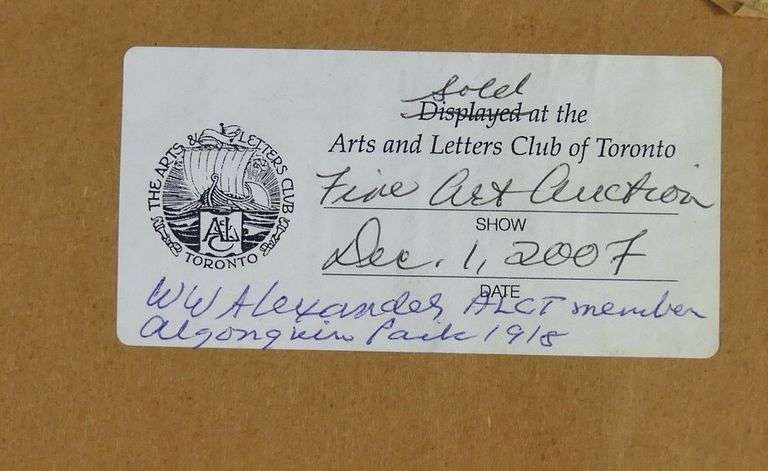 THE ARTS & LETTERS CLUB
ALC
TORONTO
Sold
Displayed at the
Arts and Letters Club of Toronto
Fine Art Auction
SHOW
Dec. 1, 2007
DATE
WW Alexander ALCT member
Algonquin Park 1918